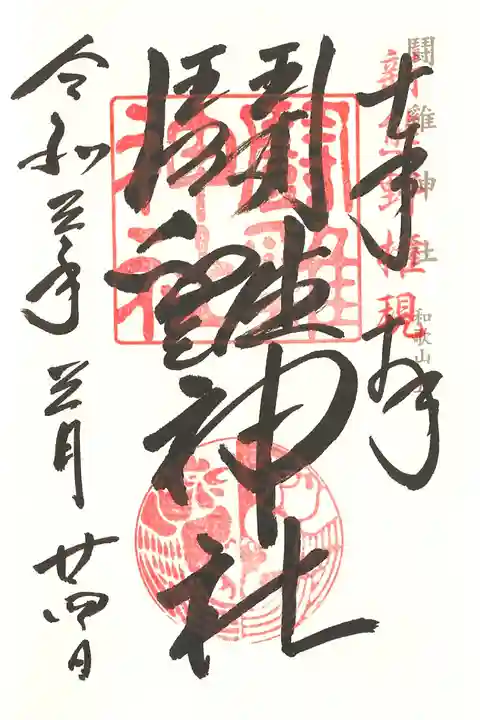 鬪雞神社 和歌山
新熊野権現
奉拝
鬪雞神社
鬪雞神社
令和三年三月廿四日